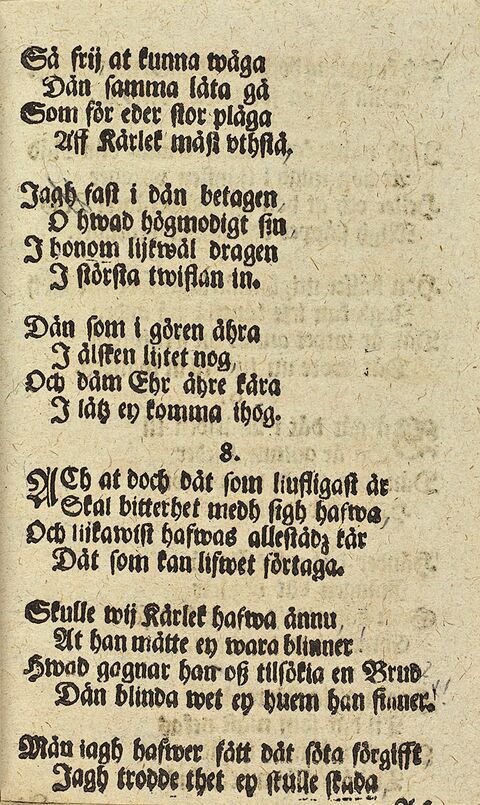 Så frij at kunna wåga
Dän samma låta gå
Som för eder stor plåga
Aff Kärlek måst vthstå.
Jagh fast i dän betagen
O hwad högmodigt sin
I honom lijkwäl dragen
I största twiflan in.
Dän som i gören ähra
I älsken lijtet nog
Och däm Ehr ähre kära
I lätz ey komma ihog.
8.
ACh at doch dät som liufligast är
Skal bitterhet medh sigh hafwa,
Och lijkawist hafwas allestädz kär
Dät som kan lifwet förtaga.
Skulle wij Kärlek hafwa ännu,
At han måtte ey wara blinner
Hwad gagnar han oß tilsökia en Brud
Dän blinda wet ey huem han finner.
Män iagh hafwer fått dät söta förgifft
Jagh trodde thet ey skulle skada